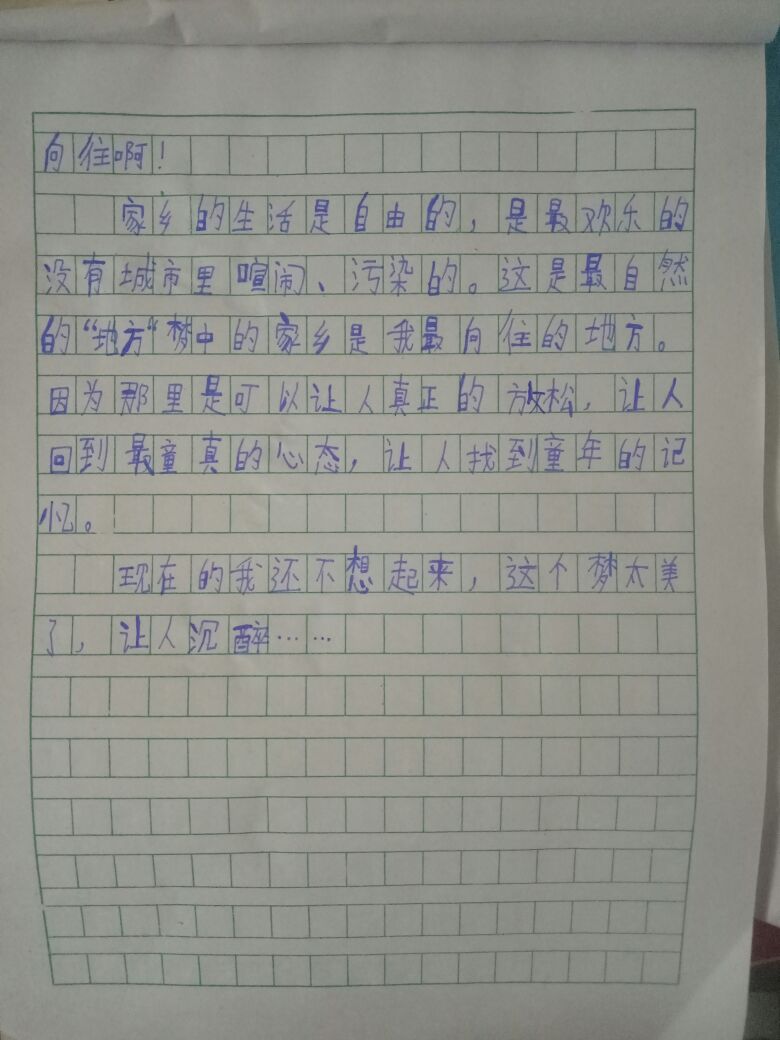 向往啊！
家乡的生活是自由的，是最欢乐的
没有城市里喧闹、污染的。这是最自然
的“地方“梦中的家乡是我最向往的地方。
因为那里是可以让人真正的放松，让人
回到最童真的心态，让人找到童年的记
忆。
现在的我还不想起来，这个梦太美
了，让人沉醉……